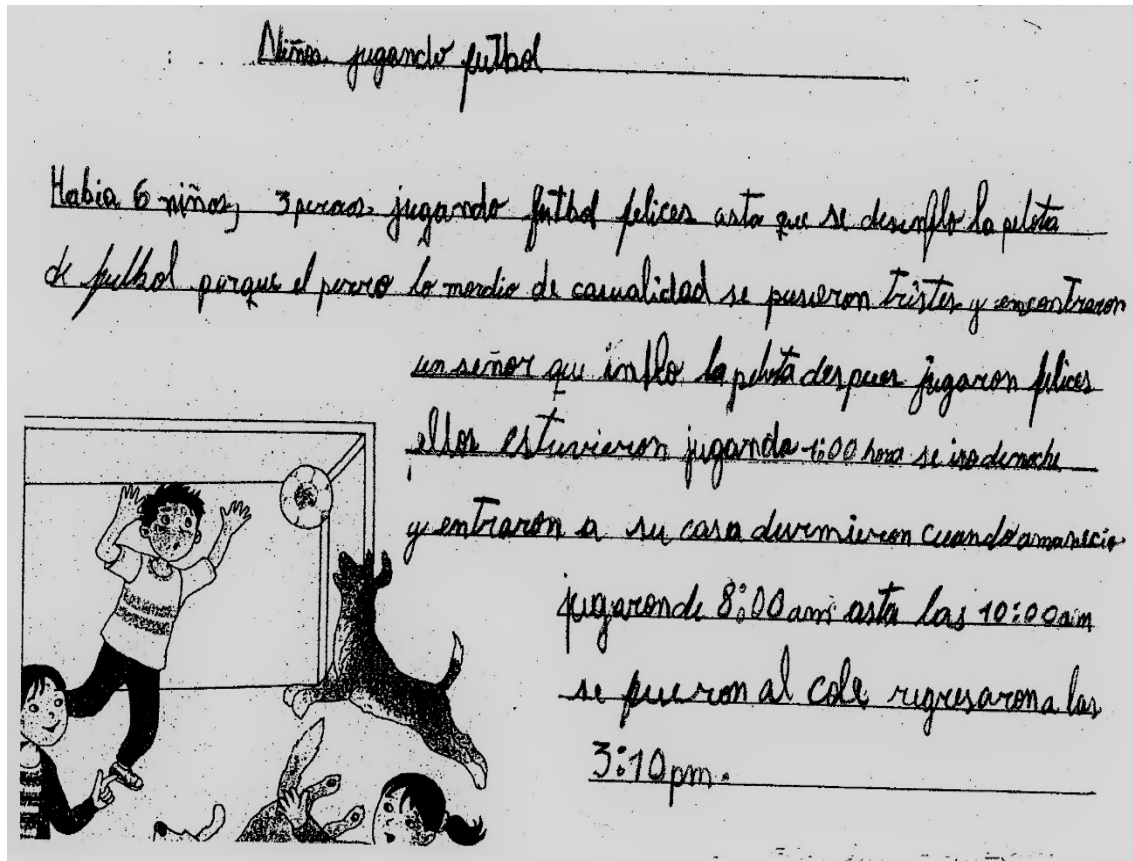 Niños jugando futbol
Habia 6 niños, 3 perros jugando futbol felices asta que se desinflo la pelota
de futbol porque el perro lo mordio de casualidad se pusieron tristes y encontraron
un señor que inflo la pelota despues jugaron felices
ellos estuvieron jugando 1:00 hora se iso de noche
y entraron a su casa durmieron cuando amanecio
jugaron de 8:00 am asta las 10:00 am
se fueron al cole regresaron a las
3:10 pm.